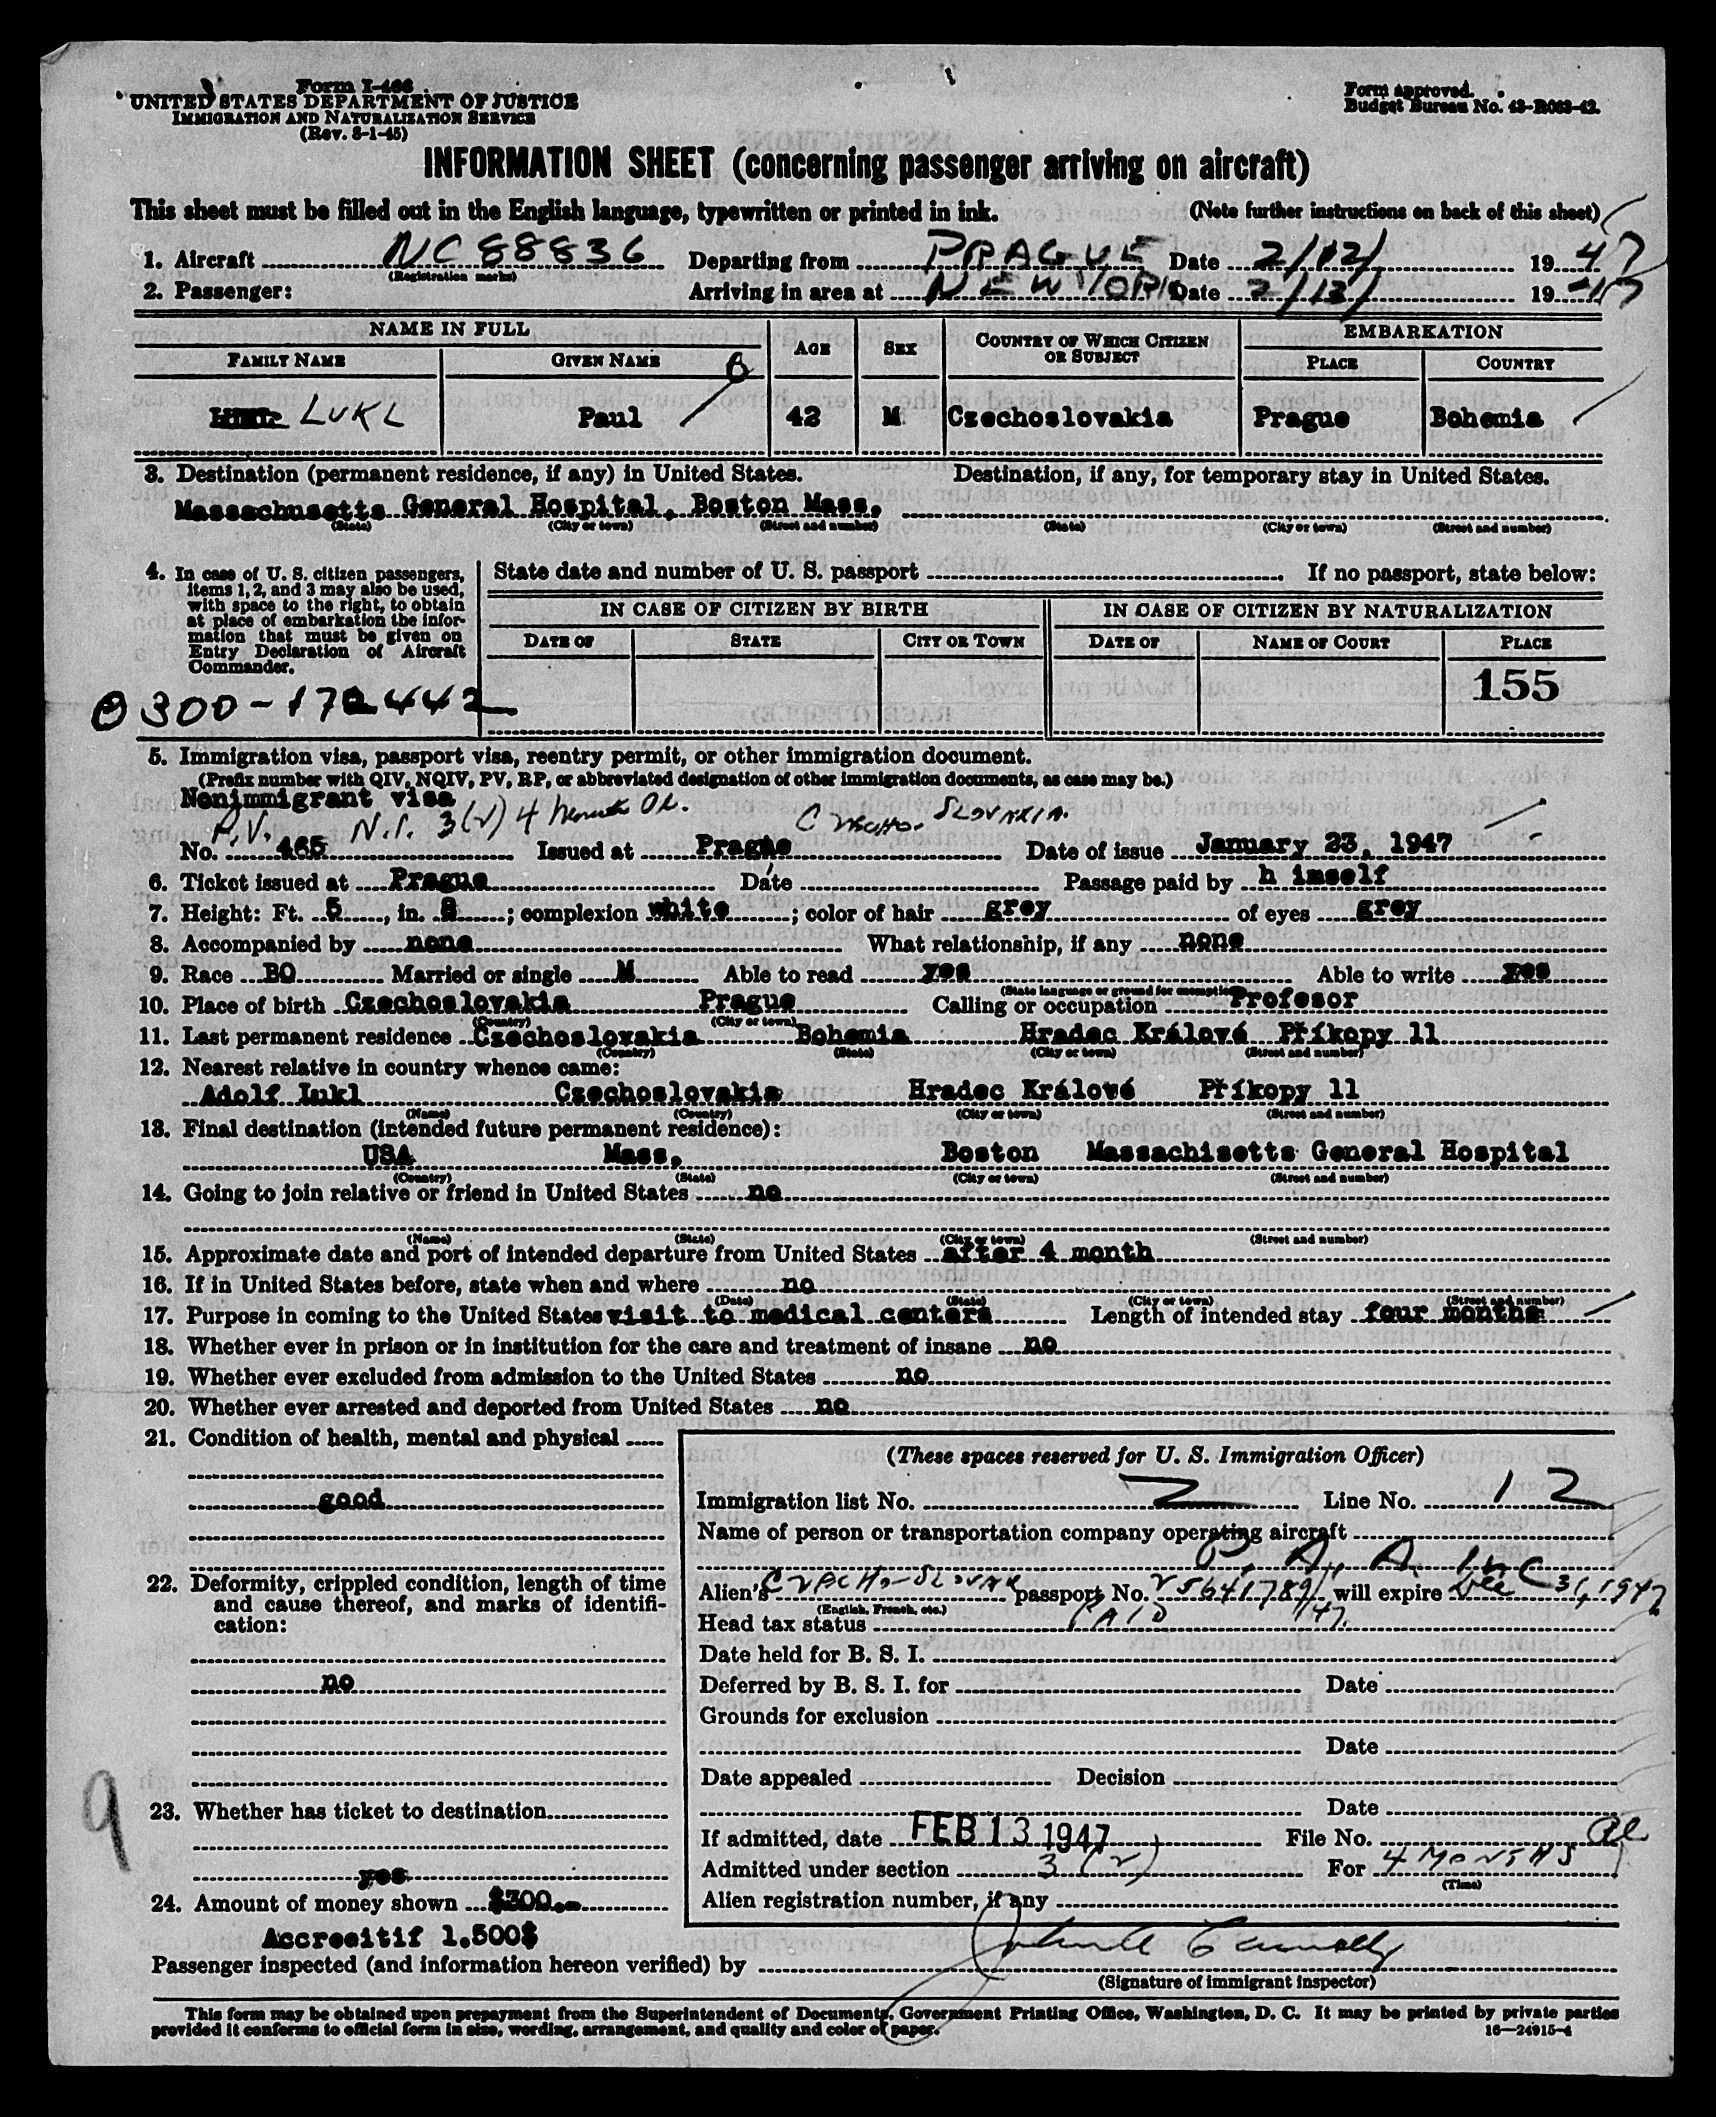 Form I-466
UNITED STATES DEPARTMENT OF JUSTICE
IMMIGRATION AND NATURALIZATION SERVICE
(Rev. 8-1-45)
Form approved.
Budget Bureau No. 43-R063-42.
INFORMATION SHEET (concerning passenger arriving on aircraft)
This sheet must be filled out in the English language, typewritten or printed in ink. (Note further instructions on back of this sheet)
1. Aircraft NC 88836 Departing from PRAGUE Date 2/12/ 1947
(Registration marks)
2. Passenger: Arriving in area at NEW YORK Date 2/13/ 1947
NAME IN FULL AGE SEX COUNTRY OF WHICH CITIZEN OR SUBJECT EMBARKATION
FAMILY NAME GIVEN NAME PLACE COUNTRY
LUKL Paul 42 M Czechoslovakia Prague Bohemia
3. Destination (permanent residence, if any) in United States. Destination, if any, for temporary stay in United States.
Massachusetts General Hospital, Boston Mass.
(State) (City or town) (Street and number) (State) (City or town) (Street and number)
4. In case of U. S. citizen passengers, items 1, 2, and 3 may also be used, with space to the right, to obtain at place of embarkation the information that must be given on Entry Declaration of Aircraft Commander.
State date and number of U. S. passport If no passport, state below:
IN CASE OF CITIZEN BY BIRTH IN CASE OF CITIZEN BY NATURALIZATION
DATE OF STATE CITY OR TOWN DATE OF NAME OF COURT PLACE
155
0300-172442
5. Immigration visa, passport visa, reentry permit, or other immigration document.
(Prefix number with QIV, NQIV, PV, RP, or abbreviated designation of other immigration documents, as case may be.)
Nonimmigrant visa
P.V. N.I. 3(2) 4 OK. CZECHO-SLOVAKIA.
No. 465 Issued at Prague Date of issue January 23, 1947
6. Ticket issued at Prague Date Passage paid by h imself
7. Height: Ft. 5, in. 8; complexion white; color of hair grey of eyes grey
8. Accompanied by none What relationship, if any none
9. Race BO Married or single M Able to read yes Able to write yes
(State language or ground for exemption)
10. Place of birth Czechoslovakia Prague Calling or occupation Profesor
(Country) (City or town)
11. Last permanent residence Czechoslovakia Bohemia Hradec Králové Příkopy 11
(Country) (State) (City or town) (Street and number)
12. Nearest relative in country whence came:
Adolf Lukl Czechoslovakia Hradec Králové Příkopy 11
(Name) (Country) (City or town) (Street and number)
13. Final destination (intended future permanent residence):
USA Mass. Boston Massachisetts General Hospital
(Country) (State) (City or town) (Street and number)
14. Going to join relative or friend in United States no
(Name) (State) (City or town) (Street and number)
15. Approximate date and port of intended departure from United States after 4 month
16. If in United States before, state when and where no
(Date) (State) (City or town) (Street and number)
17. Purpose in coming to the United States visit to medical centers Length of intended stay four months
18. Whether ever in prison or in institution for the care and treatment of insane no
19. Whether ever excluded from admission to the United States no
20. Whether ever arrested and deported from United States no
21. Condition of health, mental and physical
good
22. Deformity, crippled condition, length of time and cause thereof, and marks of identification:
no
9
23. Whether has ticket to destination
yes
24. Amount of money shown $300.-
Accreeitif 1.500$
(These spaces reserved for U. S. Immigration Officer)
Immigration list No. 2 Line No. 12
Name of person or transportation company operating aircraft
P. A. A. INC
Alien's CZECHO-SLOVAK passport No. will expire Dec 31, 1947
(English, French, etc.)
Head tax status PAID
Date held for B. S. I.
Deferred by B. S. I. for Date
Grounds for exclusion
Date
Date appealed Decision
Date
If admitted, date FEB 13 1947 File No.
Admitted under section 3 (2) For 4 MONTHS
(Time)
Alien registration number, if any
Passenger inspected (and information hereon verified) by
(Signature of immigrant inspector)
This form may be obtained upon prepayment from the Superintendent of Documents, Government Printing Office, Washington, D. C. It may be printed by private parties
provided it conforms to official form in size, wording, arrangement, and quality and color of paper. 16—24915-4